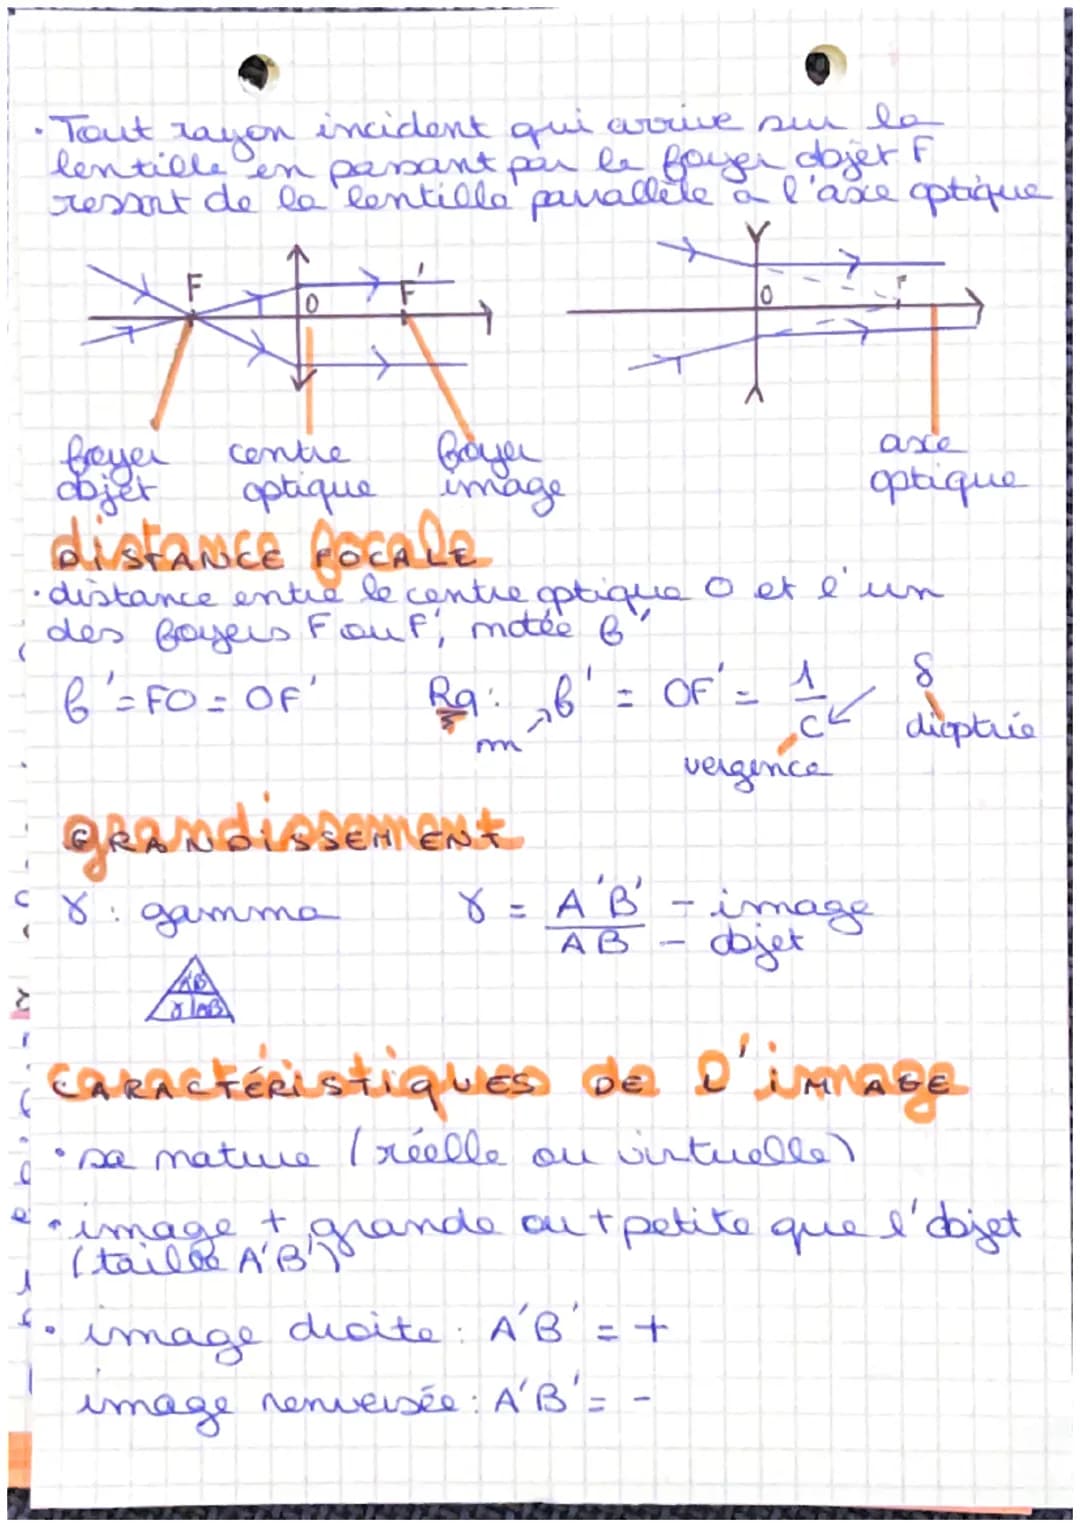 · Tout rayon incident qui arrive sur la
lentille en passant par le foyer objet F
ressort de la lentille parallèle à l'axe optique
F
O
F'
O
F
foyer
objet
centre
optique
foyer
image
axe
optique
distance focale
DISTANCE FOCALE
· distance entre le centre optique O et l'un
des foyers F ou F', notée f'
f' = FO = OF'
Rq: f' = OF' = 1/C
m
δ
dioptrie
vergence
grandissement
GRANDISSEMENT
γ : gamma
γ = A'B' - image
AB - objet
A'B'
γ | AB
CARACTÉRISTIQUES DE L'IMAGE
· sa nature (réelle ou virtuelle)
· image + grande ou + petite que l'objet
(taille A'B')
· image droite : A'B' = +
image renversée : A'B' = -